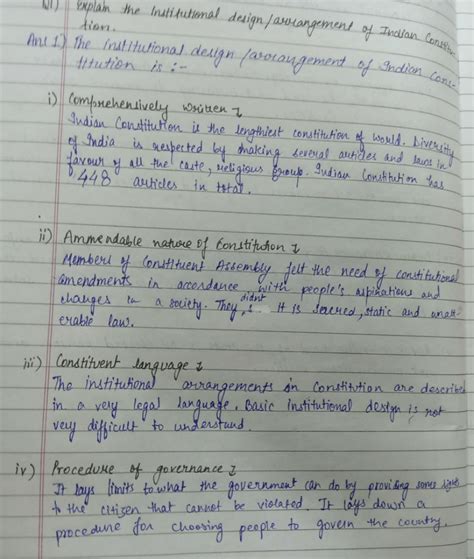 Q1) Explain the Institutional design/arrangement of Indian Constitu-
tion.
Ans 1.) The institutional design/arrangement of Indian Cons-
titution is :-
i) Comprehensively written :
Indian Constitution is the lengthiest constitution of world. Diversity
of India is respected by making several articles and laws in
favour of all the caste, religious group. Indian Constitution has
448 articles in total.
ii) Ammendable nature of Constitution :
Members of Constituent Assembly felt the need of constitutional
amendments in accordance with people's aspirations and
changes in a society. They didnt, It is sacred, static and unalt-
erable law.
iii) Constituent language :
The institutional arrangements in Constitution are described
in a very legal language. Basic institutional design is not
very difficult to understand.
iv) Procedure of governance :
It lays limits to what the government can do by providing some rights
to the citizen that cannot be violated. It lays down a
procedure for choosing people to govern the country.